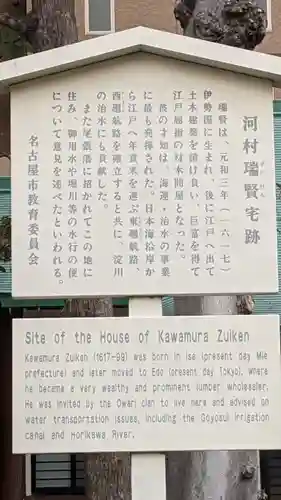 河村瑞賢宅跡
瑞賢は、元和三年(一六一七)
伊勢国に生まれ、後に江戸へ出て
土木建築を請け負い、巨富を得て
江戸屈指の材木問屋となった。
彼の才知は、海運・治水の事業
に最も発揮された。日本海沿岸か
ら江戸へ年貢米を運ぶ東廻航路、
西廻航路を確立すると共に、淀川
の治水にも貢献した。
また尾張藩に招かれてこの地に
住み、御用水や堀川等の水行の便
について意見を述べたといわれる。
名古屋市教育委員会
Site of the House of Kawamura Zuiken
Kawamura Zuiken (1617-99) was born in Ise (present day Mie
prefecture) and later moved to Edo (present day Tokyo), where
he became a very wealthy and prominent lumber wholesaler.
He was invited by the Owari clan to live here and advised on
water transportation issues, including the Goyosui irrigation
canal and Horikawa River.